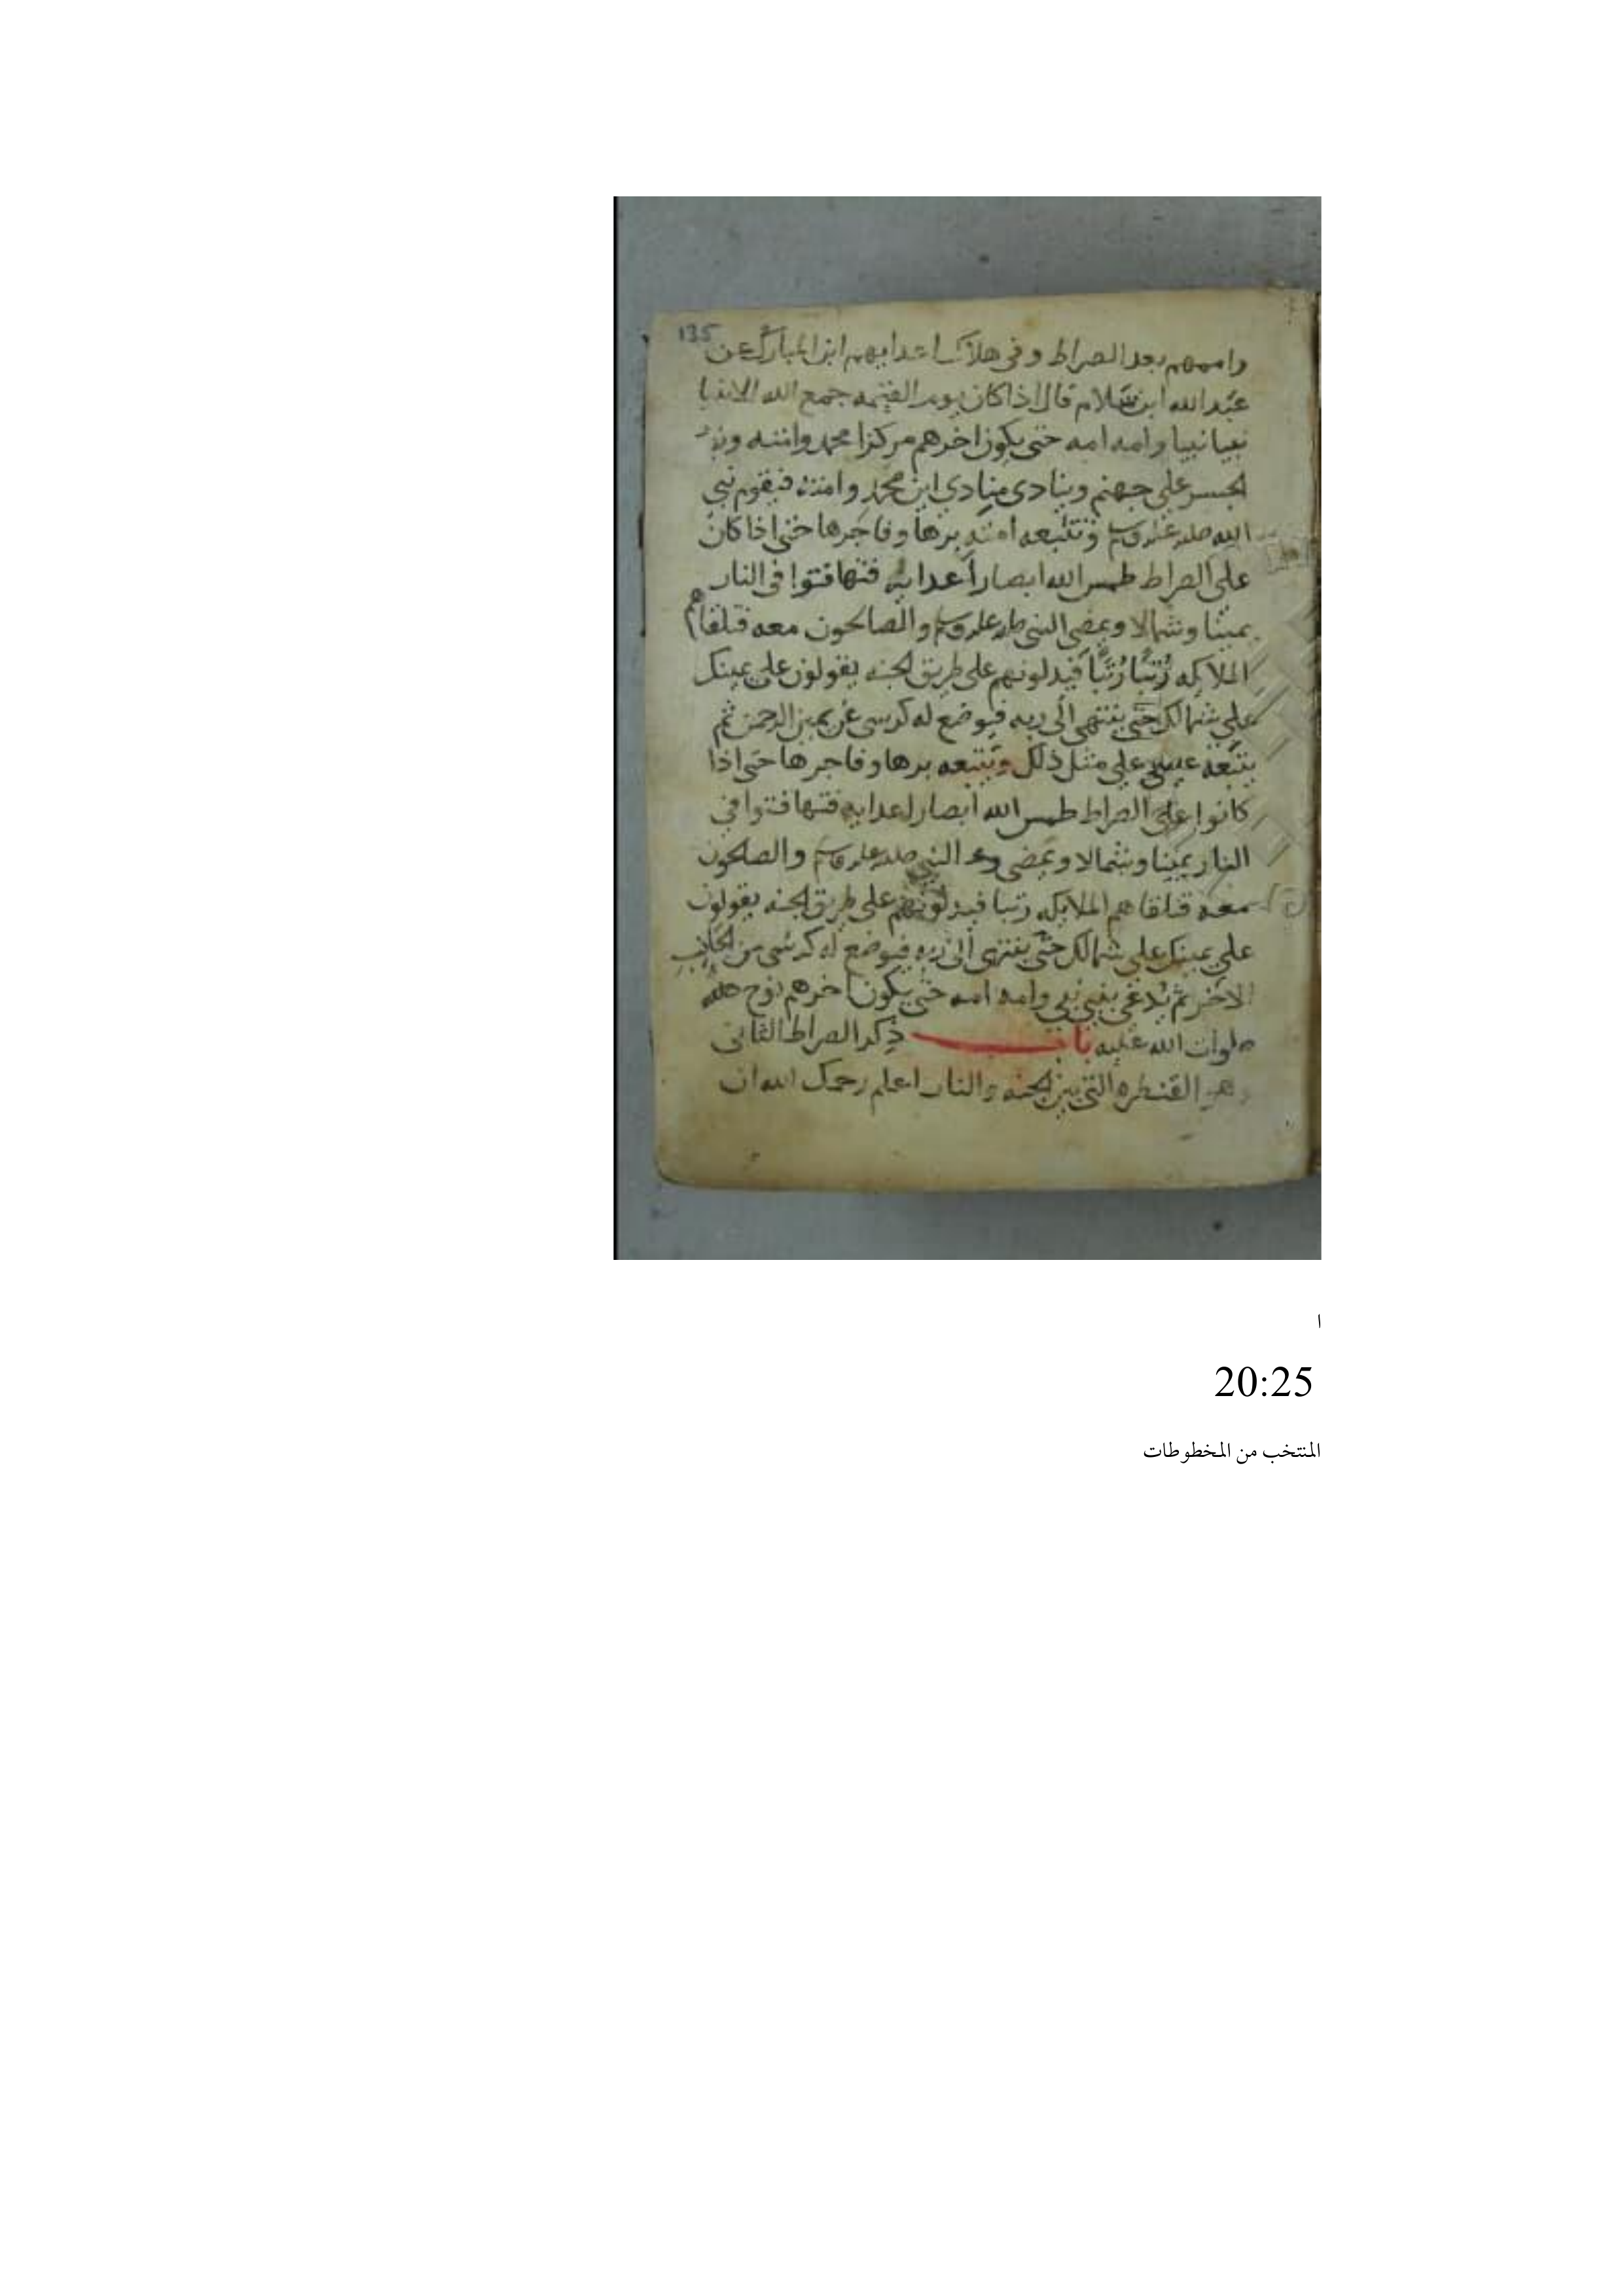 135
واممهم بعد الصراط وفي هلاك اعدايهم ابن المبارك عن
عبد الله ابن سلام قال اذا كان يوم القيمه جمع الله الانبيا
نبيا نبيا وامه امه حتى يكون اخرهم مركزا محمد وامته
الجسر على جهنم وينادى منادي اين محمد وامته فيقوم نبي
الله صلى الله عليه وسلم وتتبعه امته برها وفاجرها حتى اذا كان
على الصراط طمس الله ابصار اعدايه فتهافتوا في النار
يمينا وشمالا ويمضي النبي صلى الله عليه وسلم والصالحون معه فتلقاهم
الملايكه رتبا رتبا فيدلونهم على طريق الجنه يقولون على يمينك
على شمالك حتى ينتهى الى ربه فيوضع له كرسى عن يمين الرحمن ثم
يتبعه عيسى على مثل ذلك وتتبعه برها وفاجرها حتى اذا
كانوا على الصراط طمس الله ابصار اعدايه فتهافتوا في
النار يمينا وشمالا ويمضى النبي صلى الله عليه وسلم والصلحون
معه فتلقاهم الملايكه رتبا فيدلونهم على طريق الجنه يقولون
على يمينك على شمالك حتى ينتهى الى ربه فيوضع له كرسى من الجانب
الاخر ثم يدعى نبي نبي وامه امه حتى يكون اخرهم نوح
صلوات الله عليه باب ذكر الصراط الثانى
وهو القنطره التي بين الجنه والنار اعلم رحمك الله ان
ا
20:25
المنتخب من المخطوطات